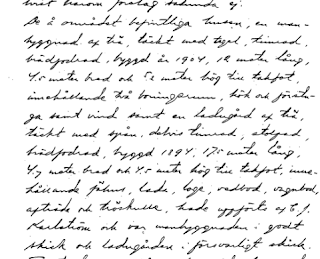 De å området befintliga husen, en man-
byggnad af trä, täckt med tegel, timrad,
brädfodrad, byggd år 1904, 12 meter lång,
meter bred och meter hög till takfot,
innehållande två boningsrum, kök och förstu-
ga samt vind samt en ladugård af trä,
täckt med spån, delvis timrad, stolpad
brädfodrad, byggd 1894, 17.5 meter lång,
4.7 meter bred och 4.5 meter hög till takfot, inne-
hållande fähus, lada, loge, vedbod, vagnbod,
afträde och hade uppförts af
Karlström och var manbyggnaden i godt
skick och ladugården i försvarligt skick.